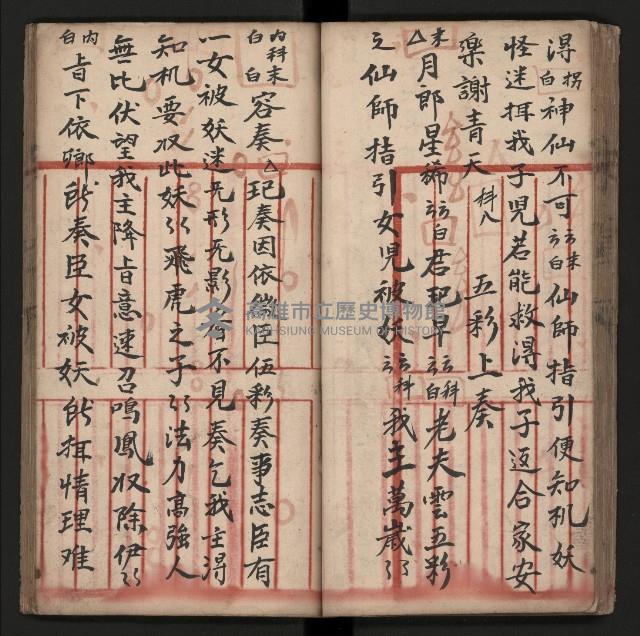 淂拐白神仙不可云末云白仙師指引便知机妖
怪迷抯我子児若能救淂我子返合家安
樂謝青天 科八 五彩上奏
末月郎星稀云云白君現早云科云白老夫雲五彩
之仙師指引女児被妖云科云我主萬歲
内科末白白容奏 奏因依微臣伍彩奏事志臣有
一女被妖迷旡形旡影 不見奏乞我主淂
知机要収此妖 飛虎之子 法力高強人
無比伏望我主降旨意速召鳴鳳収除伊
内白旨下依卿所奏臣女被妖所抯情理难
高雄市立歷史博物館
KAOHSIUNG MUSEUM OF HISTORY